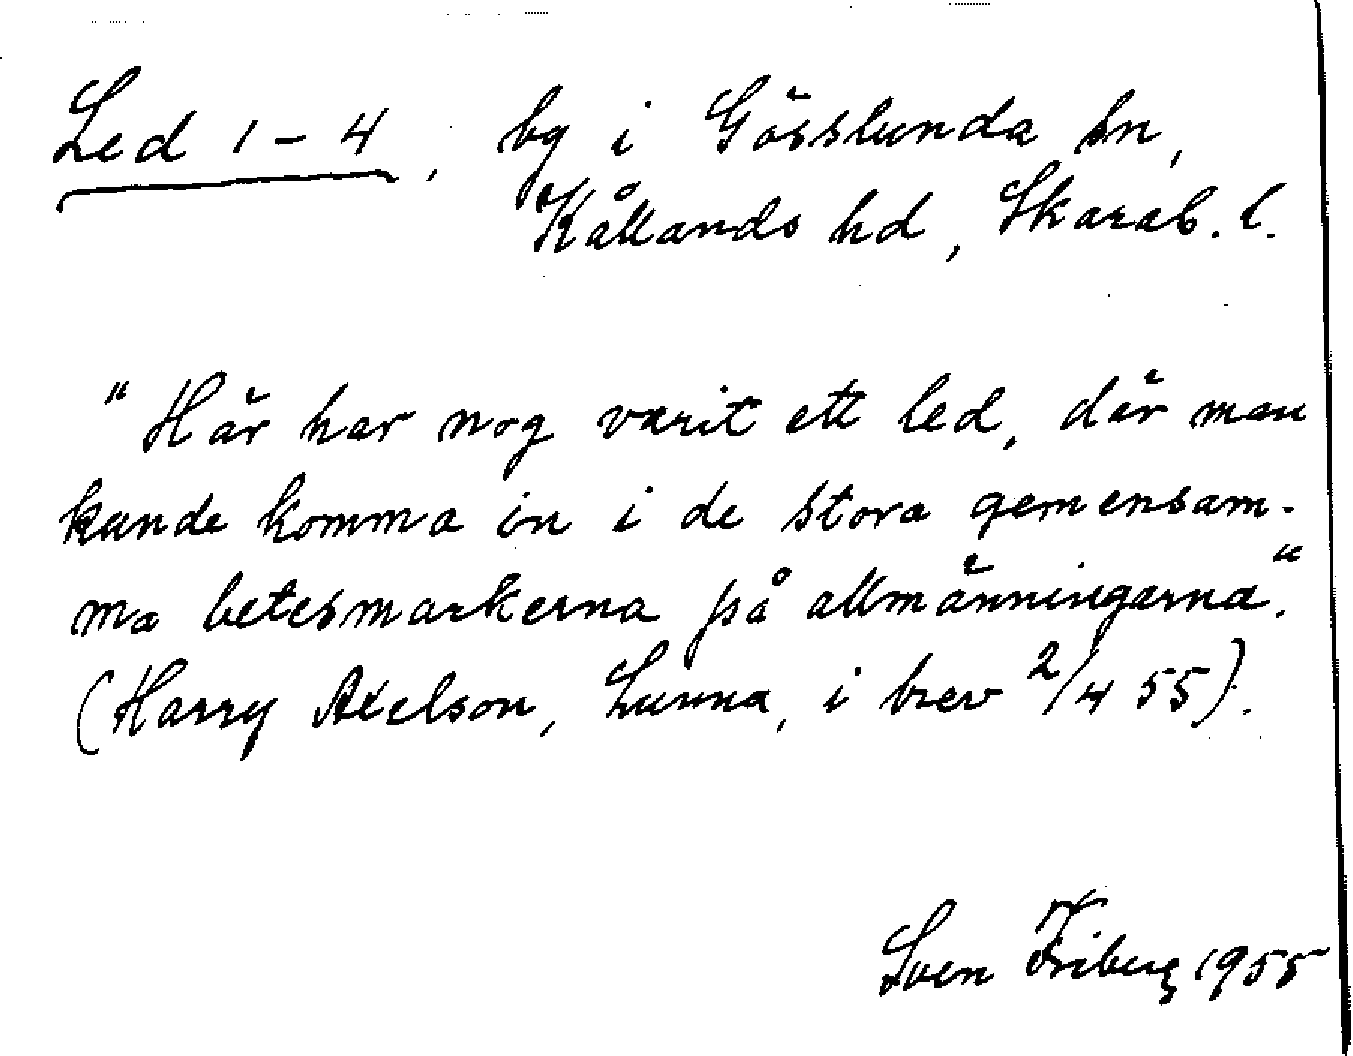 Led 1-4, by i Gösslunda sn,
Kållands hd, Skarab. l.
"Här har nog varit ett led, där man
kunde komma in i de stora gemensam-
ma betesmarkerna på allmänningarna."
(Harry Axelson, Lunna, i brev 2/4 55).
Sven Friberg 1955